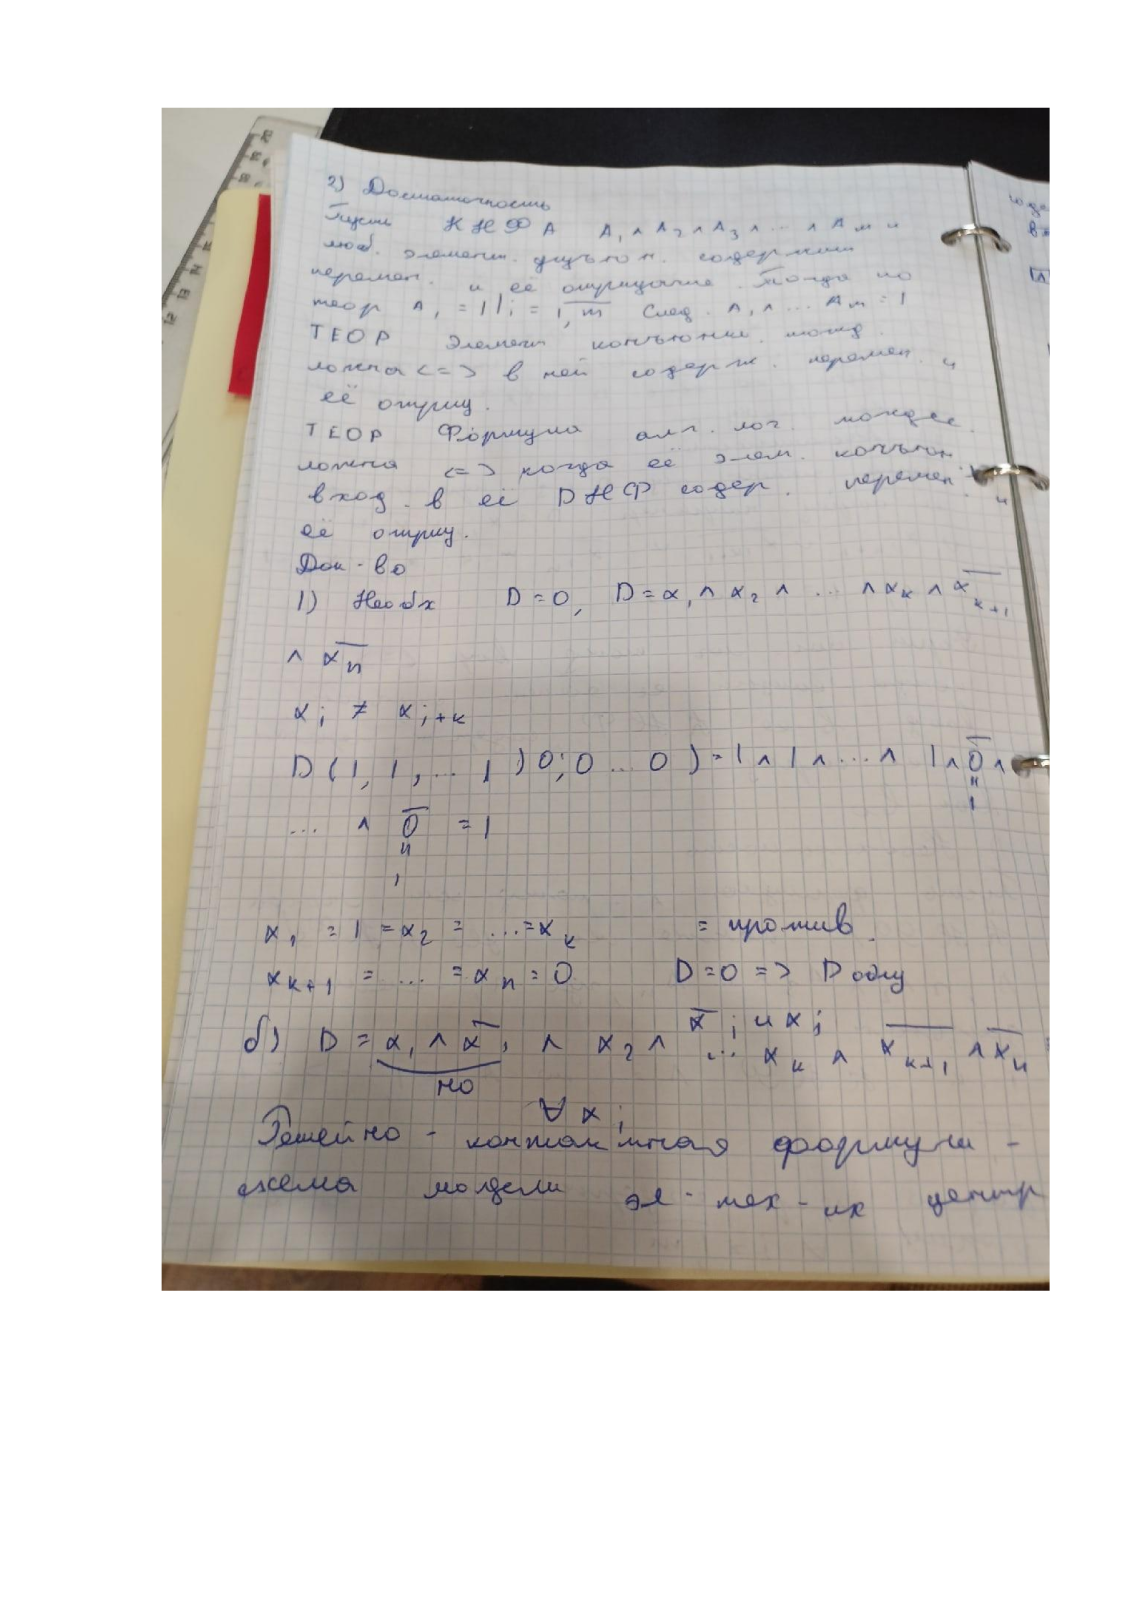 2) Достаточность
Пусть КНФ A A₁ ∧ A₂ ∧ A₃ ∧ ... ∧ Aₘ и
люб. элемент. дизъюн. содержит
перемен. и её отрицание. Тогда по
теор A₁ = 1 | i = 1, m̅ След. A₁ ∧ ... Aₘ = 1
ТЕОР Элемент конъюнкц. тожд.
ложна <=> в ней содерж. перемен. и
её отриц.
ТЕОР Формула алг. лог. тождес.
ложна <=> когда её элем. конъюн
вход. в её DНФ содер. перемен. и
её отриц.
Док-во
1) Необх D = 0, D = x₁ ∧ x₂ ∧ ... ∧ xₖ ∧ x̅ₖ₊₁
∧ x̅ₙ
xᵢ ≠ xᵢ₊ₖ
D (1, 1, ... 1) 0; 0 ... 0) = 1 ∧ 1 ∧ ... ∧ 1 ∧ 0̅ ∧
"
1
... ∧ 0̅ = 1
"
1
x₁ = 1 = x₂ = ... = xₖ = против.
xₖ₊₁ = ... = xₙ = 0 D = 0 => D одну
x̅ᵢ и xᵢ
б) D = x₁ ∧ x̅₁ ∧ x₂ ∧ ... xₖ ∧ x̅ₖ₊₁ ∧ x̅ₙ =
но
∀ xᵢ
Релейно - контактная формула -
схема модели эл - мех - их